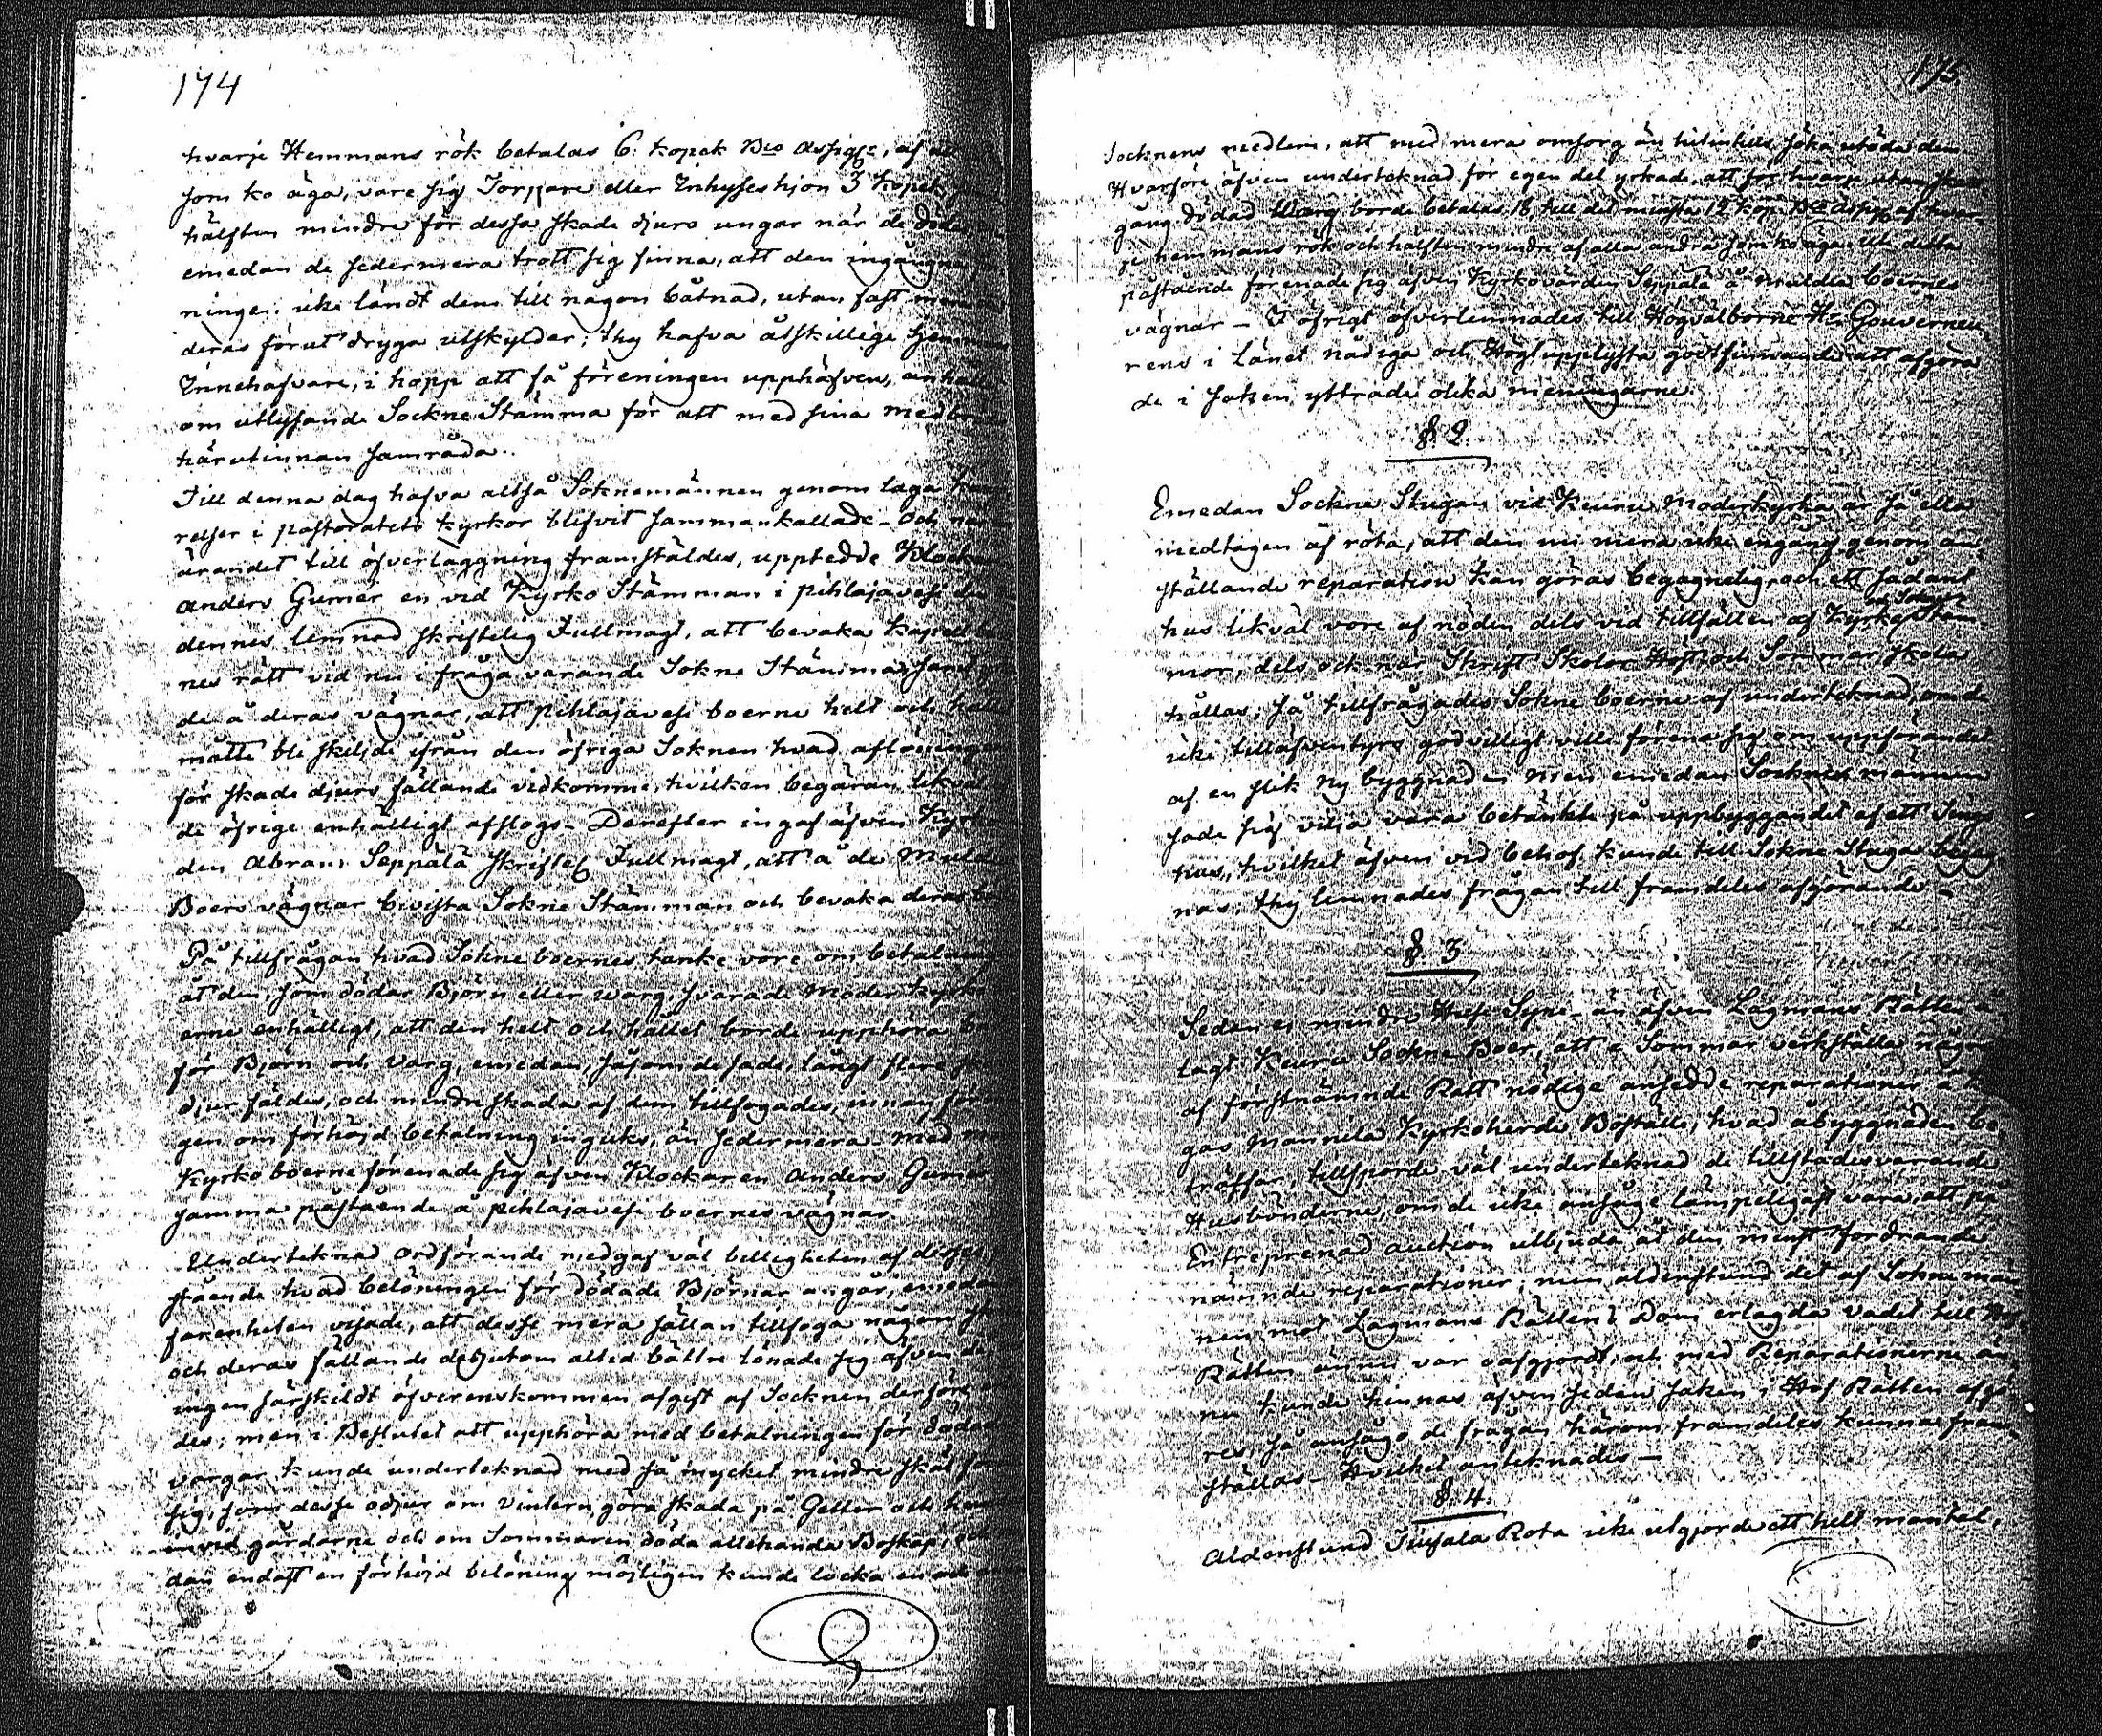 174
hvarje Hemmans rök betalas 6. kopek Bco Assign:, af
som ko äga, vare sig Torpare eller Inhyseshjon 3 kopek
hälften mindre för dessa skade djurs ungar när de döda
emedan de sedermera trott sig finna, att den ingångne
ningen icke ländt dem till någon båtnad, utan fast
deras förut dryga utskylder; thy hafva åtskillige Hemmans
Innehafvare, i hopp att få föreningen upphäfven, anhållit
om utlysande Sockne Stämma för att med sina medbr
härutinnan samråda.
Till denna dag hafva altså Soknemännen genom laga
relser i pastoratets kyrkor blifvit sammankallade – Och när
ärendet till öfverläggning framstäldes, uppte­dde Klocka
Anders Gumér en vid Kyrko Stämman i Pihlajavesi
dennes lemnad skriftelig Fullmagt, att bevaka kapell
nes rätt vid nu i fråga varande Sokne Stämma
de å deras vägnar, att Pihlajavesi boerne helt och hållit
måtte bli skiljde ifrån den öfriga Soknen hvad aflöningen
för skade djurs fällande vidkomme, hvilken begäran likväl
de öfrige enhälligt afslogs – Derefter ingaf äfven Kyrko
den Abram Seppälä skriftel Fullmagt, att å de Muldia
Boers vägnar bevista Sokne Stämman och bevaka deras
På tillfrågan hvad Sokne boernes tanke vore om betalning
åt den, som dödar Björn eller Warg, svarade Moderkyrko
erne enhälligt, att den helt och hållet borde upphöra
för Björn och Varg, emedan, såsom de sade, långt flere
djur fäldes, och mindre skada af dem tillfogades, innan före
gen om förhöjd betalning ingicks, än sedermera – Med
Kyrko boerne förenade sig äfven Klockaren Anders Gumér
samma påstående å Pihlajavesi boernes vägnar.
Underteknad Ordförande medgaf väl billigheten af desses
stående hvad belöningen för dödade Björnar angår, emedan
farenheten visade, att desse mera sällan tillfoga någon
och deras fällande desutom altid bättre lönade sig äfven
ingen särskildt öfverenskommen afgift af Socknen derföre
des; men i Beslutet att upphöra med betalningen för dödade
vargar kunde underteknad med så mycket mindre skäl
sig, som desse odjur om Vintern göra skada på Getter och
invid gårdarne och om Sommaren döda allehanda Boskap,
dan endast en förhöjd belöning möjligen kunde locka en och
175
Socknens medlem, att med mera omsorg än hitintills söka utöda dem
Hvarföre äfven underteknad för egen del yrkade, att för hvarje utan
gång dödad Warg borde betalas 18, till det minsta 12 kop. Bco Assign af hvar-
je hemmans rök och hälften mindre af alla andra som ko äga. Uti detta
påstående förenade sig äfven Kyrkovärden Seppälä å Muldia boernes
vägnar – I öfrigt öfverlemnades till Högvälborne Hr Gouverneu-
rens i Länet nådiga och Högtupplysta godtfinnande att afgöra
de i saken yttrade olika meningarne.
§. 2.
Emedan Sockne Stugan vid Keuru Moderkyrka är så illa
medtagen af röta, att den nu mera icke engång genom an-
ställande reparation kan göras begagnelig, och ett sådant
hus likväl vore af nöden dels vid tillfällen af Kyrko och Sokne Stäm-
mor, dels ock när Skrift Skolor Höst och Sommar skola
hållas, så tillfrågades Sokne boerne af underteknad, om de
icke tilläfventyrs godvilligt ville förena sig om uppförandet
af en slik ny byggnad – men emedan Sockne männen
sade sig vilja vara betänkte på uppbyggandet af ett Tings
hus, hvilket äfven vid behof kunde till Sokne Stuga begag-
nas, thy lemnades frågan till framdeles afgörande –
§ 3
Sedan ej mindre Huse Syne – än äfven Lagmans Rätten
lagt Keuru Sockne Boer, att i Sommar verkställa någre
af förstnämnde Rätt nödige ansedde reparationer å
gas Mannila Kyrkoherde Boställe, hvad åbyggnaden be-
träffar, tillsporde väl underteknad de tillstädesvarande
Husbönderne, om de icke ansåge lämpeligast vara, att på
Entreprenad auction utbjuda åt den minst fordrande
nämnde reparationer; men aldenstund det af Sokne män-
nen mot Lagmans Rättens Dom erlagda vadet till Hof
Rätten ännu var oafgjordt, och med Reparationerne än-
nu kunde hinnas äfven sedan saken i Hof Rätten afgjo-
res, så ansågo de frågan härom framdeles kunna fram-
ställas – Hvilket anteknades –
§. 4.
Aldenstund Tiusala Rota icke utgjorde ett helt mantal,